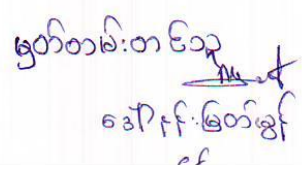 မှတ်တမ်းတင်သူ
ဒေါ်နန်းမြတ်မွန်